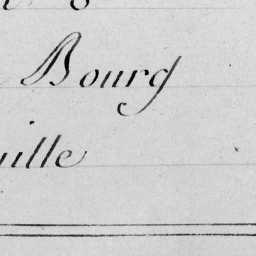 Bourg
uille